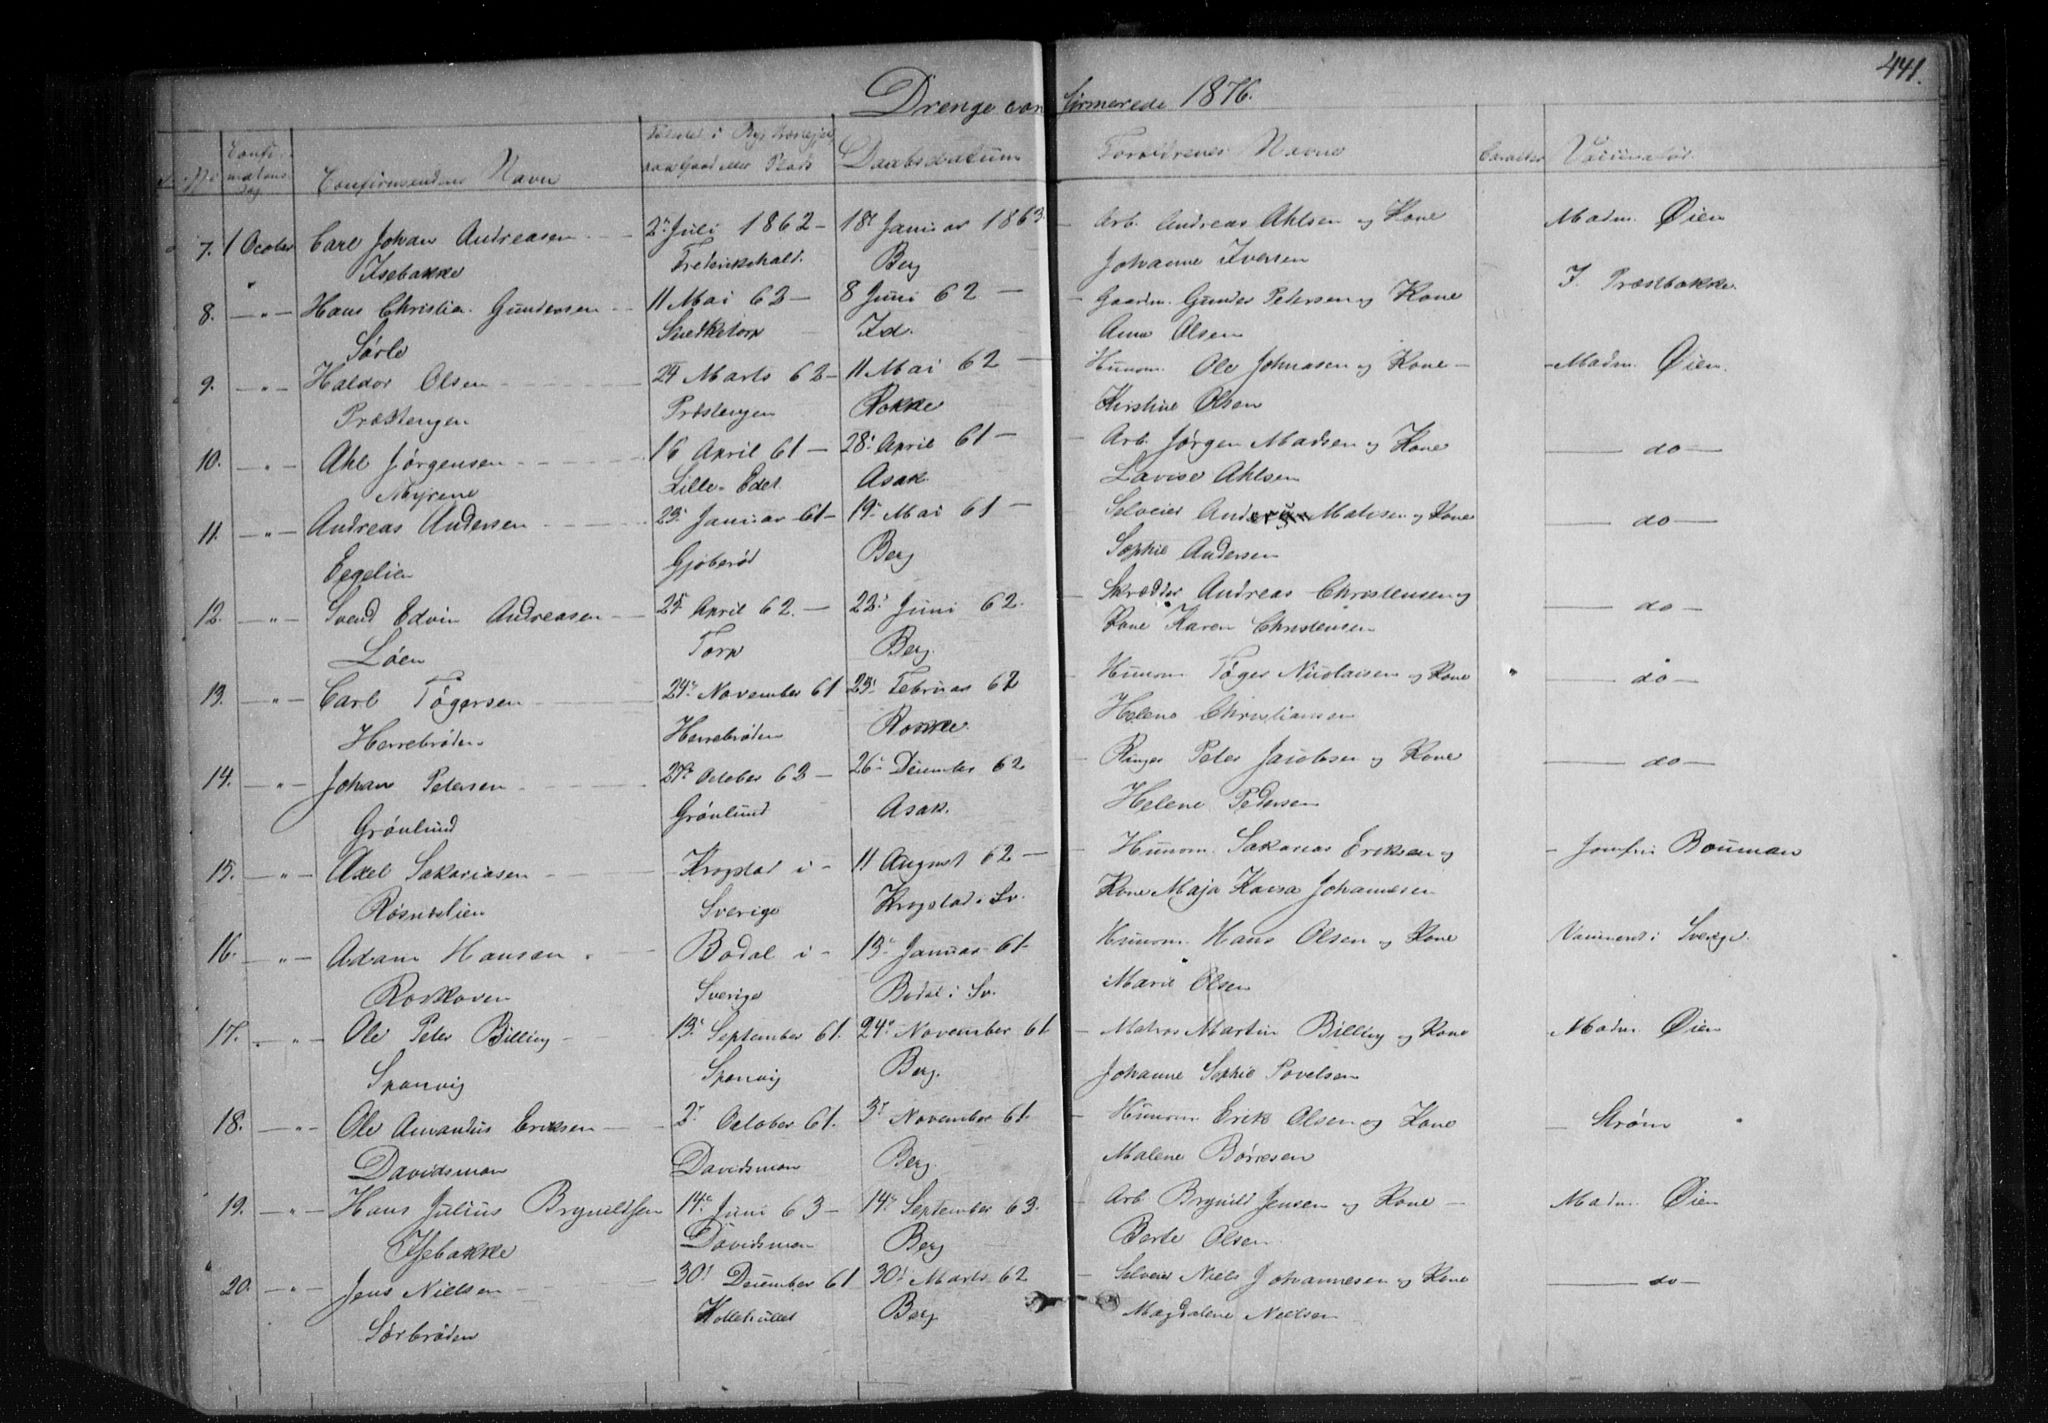 441.
Drenge confirmerede 1876.
No Confirmationsdag Confirmandens Navn Daabsdatum Forældrenes Navne Caracter Vaccinatør
7. 1 October Carl Johan Andreasen 2. Juli 1862 — 18. Januar 1863 — Arb. Andreas Ahlsen og Kone Madm. Øien
Isebakke Fredrikshald. Berg Johanne Iversen
8. — " — Hans Christian Gundersen 11 Mai 62 — 8 Juni 62 — Gaardm. Gunder Petersen og Kone I. Præstbakke.
Sørle Id. Anne Olsen
9. — " — Haldor Olsen 24 Marts 62 — 11 Mai 62 — Huusm. Ole Johnasen og Kone — Madm. Øien.
Præstengen Præstengen Rokke Kirstine Olsen
10. — " — Ahl Jørgensen 16 April 61 — 28. April 61 — Arb. Jørgen Madsen og Kone — do —
Myrene Lille-Edet Asak Lavise Ahlsen
11. — " — Andreas Andersen 23. Januar 61 — 19. Mai 61 — Selveier Anders Mathisen og Kone — do —
Eegelien Gjøberød Berg Sophie Andersen
12. — " — Svend Edvin Andreasen 25 April 62. — 22. Juni 62. Skrædder Andreas Christensen og — do —
Løen Torp Berg. Kone Karen Christensen
13. — " — Carl Tøgersen 24. November 61 23. Februar 62 Huusm. Tøger Nicolaisen og Kone — do —
Herrebrøden Herrebrøden Rokke. Helene Christiansen
14. — " — Johan Petersen 27. October 62 — 26. December 62 — Ringer Peter Jacobsen og Kone — do —
Grønlund Grønlund Asak. Helene Pedersen
15. — " — Axel Sakariasen Krogstad i — 11 August 62 — Huusm. Sakarias Eriksen og — Jomfru Bouman
Røsneslien Sverige Krogstad i Sv. Kone Maja Kaisa Johannesen
16. — " — Adam Hansen Bodal i — 13. Januar 61 — Huusm. Hans Olsen og Kone Vaccineret i Sverige.
Roskoven Sverige Bodal i Sv. Marie Olsen
17. — " — Ole Peter Billing 13. September 61. 24. November 61 — Matros Martin Billing og Kone Madm. Øien
Sponvig Sponvig Berg. Johanne Sophie Povelsen
18. — " — Ole Amandus Eriksen 2. October 61. 3. November 61. — Huusm. Erik Olsen og Kone — Strøm
Davidsmon Davidsmon Berg. Malene Børresen
19. — " — Hans Julius Brynildsen 14. Juni 63 — 14. September 63. — Arb. Brynild Jensen og Kone — Madm. Øien
Isebakke Davidsmon Berg Berte Olsen
20. — " — Jens Nielsen 30. December 61 30. Marts 62 — Selveier Niels Johannesen og Kone — do —
Sørbrøden Berg Magdalene Nielsen